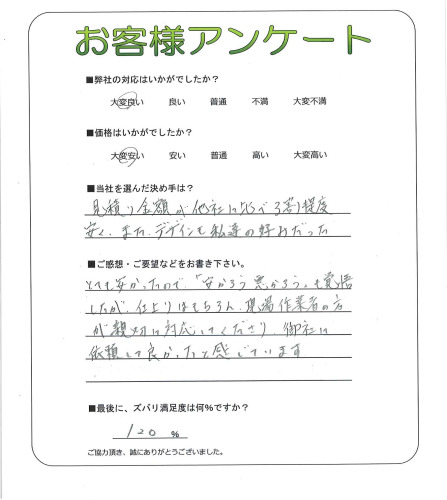 お客様アンケート
■弊社の対応はいかがでしたか？
大変良い 良い 普通 不満 大変不満
■価格はいかがでしたか？
大変安い 安い 普通 高い 大変高い
■当社を選んだ決め手は？
見積り金額が他社に比べ3割程度
安く、また、デザインも私達の好みだった
■ご感想・ご要望などをお書き下さい。
とても安かったので、「安かろう悪かろう」も覚悟
したが、仕上りはもちろん、現場作業者の方
が親切に対応してくださり、御社に
依頼して良かったと感じています
■最後に、ズバリ満足度は何%ですか？
120 %
ご協力頂き、誠にありがとうございました。